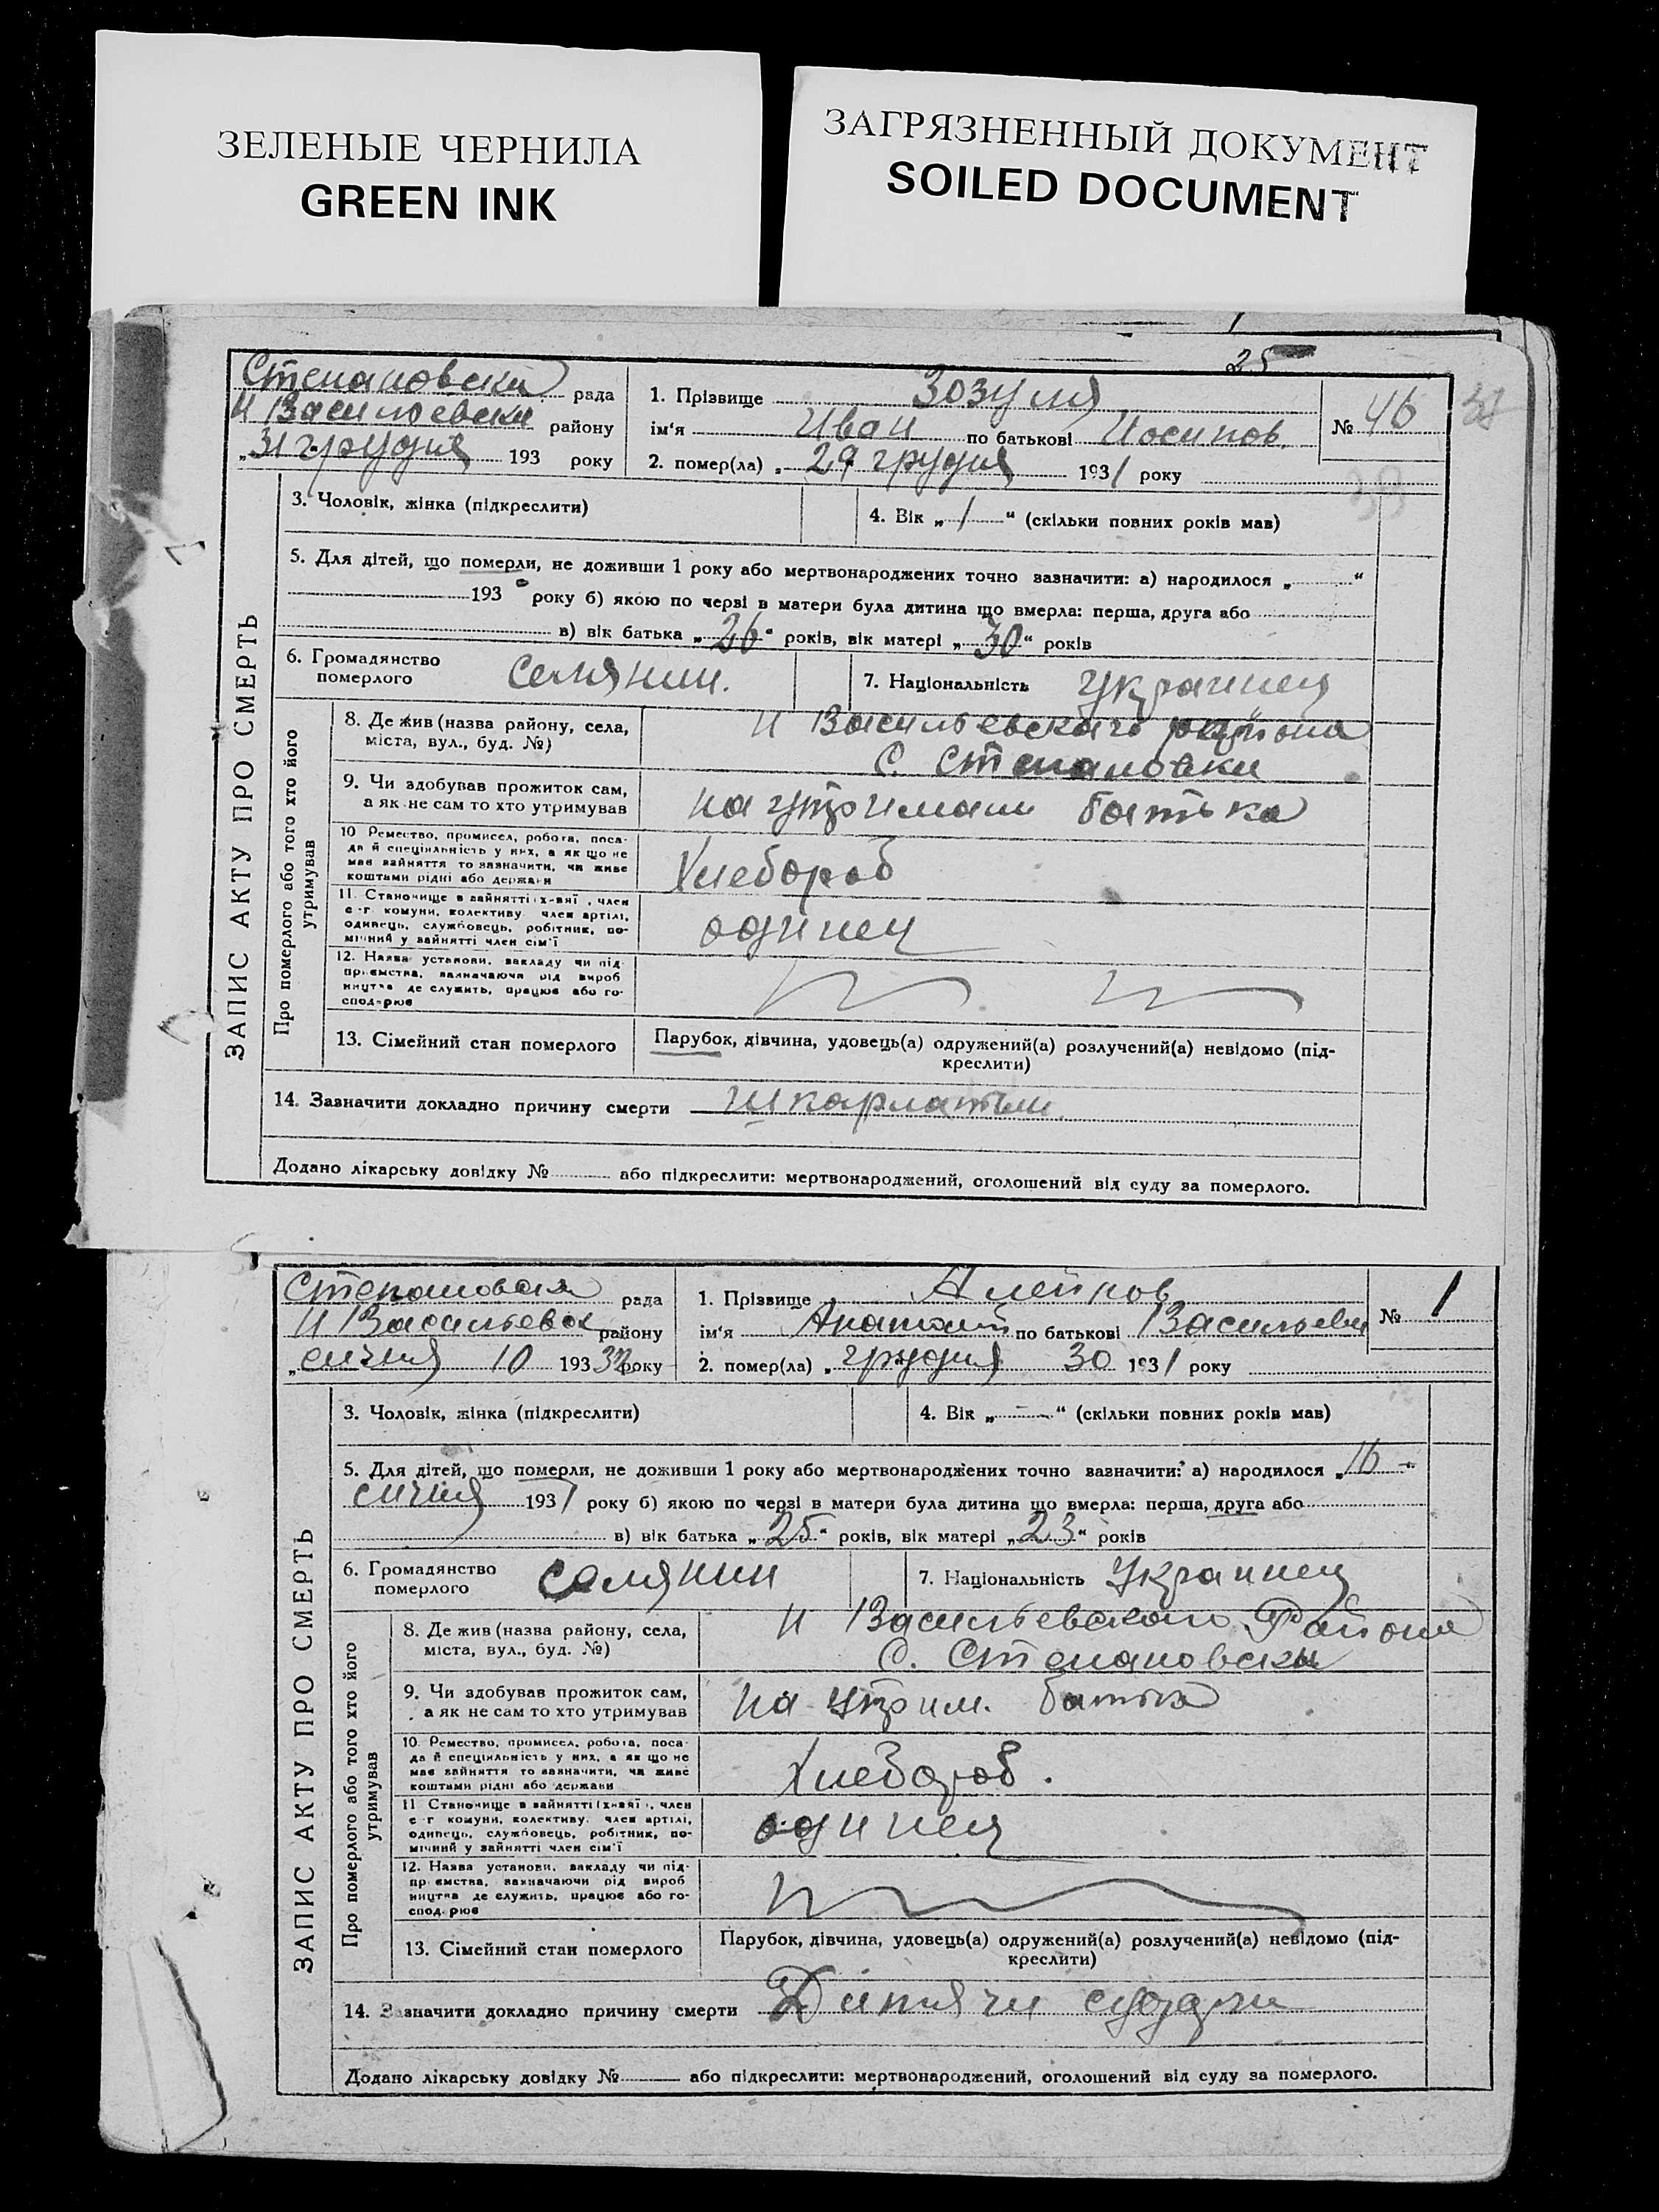 ЗЕЛЕНЫЕ ЧЕРНИЛА
GREEN INK
ЗАГРЯЗНЕННЫЙ ДОКУМЕНТ
SOILED DOCUMENT
25
Степановска рада
Н Васильевски району
„31 грудня 193 року
1. Прізвище Зозуля
ім'я Иван по батькові Иосипов.
2. помер(ла) „29 грудня 1931 року
№ 46
3. Чоловік, жінка (підкреслити)
4. Вік „1“ (скільки повних років мав)
5. Для дітей, що померли, не доживши 1 року або мертвонароджених точно зазначити: а) народилося „ “
193 року б) якою по черзі в матери була дитина що вмерла: перша, друга або
в) вік батька „26“ років, вік матері „30“ років
6. Громадянство померлого селянин.
7. Національність украинец
ЗАПИС АКТУ ПРО СМЕРТЬ
Про померлого або того хто його утримував
8. Де жив (назва району, села,
міста, вул., буд. №)
Н Васильевского района
С. Степановки
9. Чи здобував прожиток сам,
а як не сам то хто утримував
на утримани батька
10 Ремество, промисел, робота, поса-
да й спеціяльність у них, а як що не
має зайняття то зазначити, чи живе
коштами рідні або держави
Хлебороб
11. Становище в зайнятті (х-вяї, член
с-г комуни, колективу член артілі,
одинець, службовець, робітник, по-
мічний у зайнятті член сім'ї
одинец
12. Назва установи, закладу чи під-
приємства, зазначаючи рід вироб
ництва де служить, працює або го-
сподарює
13. Сімейний стан померлого
Парубок, дівчина, удовець(а) одружений(а) розлучений(а) невідомо (під-
креслити)
14. Зазначити докладно причину смерти шкарлатын
Додано лікарську довідку № або підкреслити: мертвонароджений, оголошений від суду за померлого.
Степановска рада
Н Васильевск району
„сичня 10 1932 року
1. Прізвище Алейков
ім'я Анатолий по батькові Васильеви
2. помер(ла) „грудня 30 1931 року
№ 1
3. Чоловік, жінка (підкреслити)
4. Вік „—“ (скільки повних років мав)
5. Для дітей, що померли, не доживши 1 року або мертвонароджених точно зазначити: а) народилося „16
сичня 1931 року б) якою по черзі в матери була дитина що вмерла: перша, друга або
в) вік батька „25“ років, вік матері „23“ років
6. Громадянство померлого селянин
7. Національність Украинец
ЗАПИС АКТУ ПРО СМЕРТЬ
Про померлого або того хто його утримував
8. Де жив (назва району, села,
міста, вул., буд. №)
Н Васильевского Района
С. Степановски
9. Чи здобував прожиток сам,
а як не сам то хто утримував
на утрим. батька
10. Ремество, промисел, робота, поса-
да й спеціяльність у них, а як що не
має зайняття то зазначити, чи живе
коштами рідні або держави
Хлебороб.
11 Становище в зайнятті (х-вяї, член
с-г комуни, колективу, член артілі,
одинець, службовець, робітник, по-
мічний у зайнятті член сім'ї
одинец
12. Назва установи, закладу чи під-
приємства, зазначаючи рід вироб
ництва де служить, працює або го-
сподарює
13. Сімейний стан померлого
Парубок, дівчина, удовець(а) одружений(а) розлучений(а) невідомо (під-
креслити)
14. Зазначити докладно причину смерти Дитячи судорги
Додано лікарську довідку № або підкреслити: мертвонароджений, оголошений від суду за померлого.